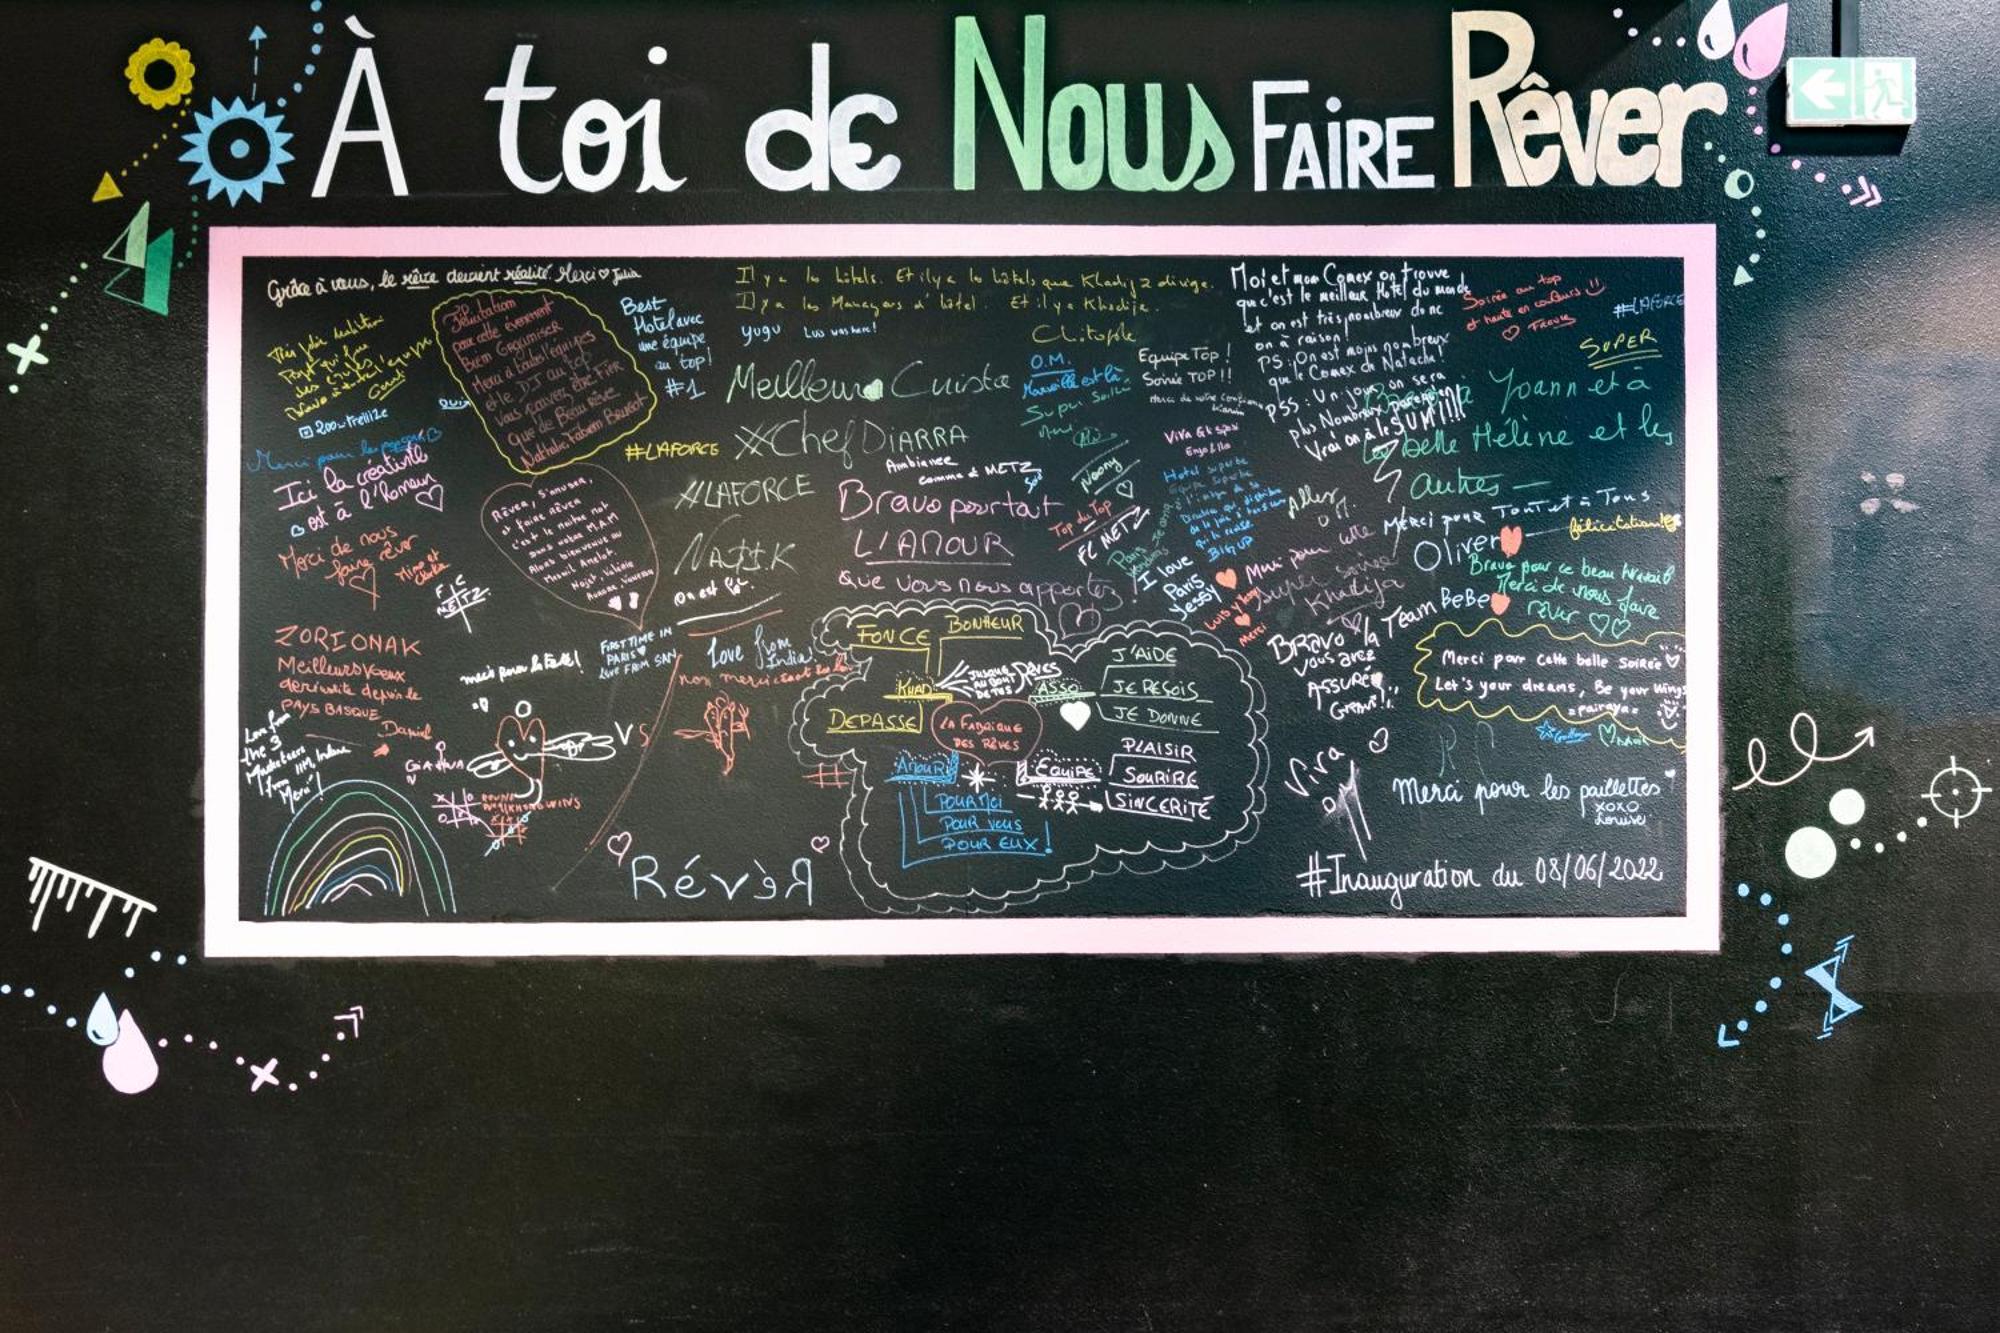 À toi de Nous FAIRE Rêver
Grâce à vous, le rêve devient réalité. Merci ♡ Julia
Félicitation
pour cette évenement
Bien Organiser
Merci à toutes l'équipes
et le DJ au top
vous pouvez être Fier
que de Beau rêve
Nathalie Fabien
Best
Hotel avec
une équipe
au top!
#1
Il y a les hôtels. Et il y a les hôtels que Khadija dirige.
Il y a les Managers d'hôtel. Et il y a Khadija.
yugu
Luis was here!
Christophe
Meilleur Cuisto
#ChefDiARRA
#LAFORCE
#LAFORCE
NASS.K
on est là.
O.M.
Marseille est là
Super Soirée
Merci
Equipe TOP!
Soirée TOP!!
Moi et mon Comex on trouve
que c'est le meilleur Hotel du monde
et on est très nombreux donc
on a raison!
PS: On est moins nombreux
que le Comex de Natacha!
PSS: Un jour on sera
plus Nombreux parce qu'on
Vrai on à le SUM!!!!
Soirée au top
et haute en couleurs!!
#LAFORCE
SUPER
Bravo à Yoann et à
la belle Hélène et les
autres —
200%
Merci pour le
Ici la créativité
est à l'honneur
Merci de nous
faire rêver
Rêver, s'amuser,
et faire rêver
c'est le maitre mot
dans notre M.A.M
Alors bienvenue au
Ambiance
comme à METZ
Bravo pour tout
L'AMOUR
que vous nous apportez
Noony
Top du Top
FC METZ
Viva
Hotel superbe
Equipe superbe
BIG UP
Allez
Merci pour TOUT et à Tous
félicitations
Oliver
Bravo pour ce beau travail
Merci de nous faire
rêver ♡♡
I love
Paris
Yessy
Merci pour cette
super soirée
Khadija
Merci
TEAM BeBe
Bravo la
vous avez
ASSURÉ
Grave!!
FC
METZ
ZORIONAK
Meilleurs Voeux
de réussite depuis le
PAYS BASQUE
Daniel
merci pour la fête!
FIRST TIME IN
PARIS
LIVE FROM SAN
Love from
India!
non merci
VS
Love from
the 3
Marketeers
from IIM, Indore
Merci!
GIANNA
FONCE
BONHEUR
KHAD
DEPASSE
JUSQU'AU BOUT DE TES RÊVES
ASSO
J'AIDE
JE REÇOIS
JE DONNE
LA FABRIQUE
DES RÊVES
PLAISIR
AMOUR
EQUIPE
SOURIRE
SINCERITÉ
POUR MOI
POUR VOUS
POUR EUX!
Merci pour cette belle soirée
Let's your dreams, Be your wings
Viva
Merci pour les paillettes
xoxo
Louise
RévèR
#Inauguration du 08/06/2022